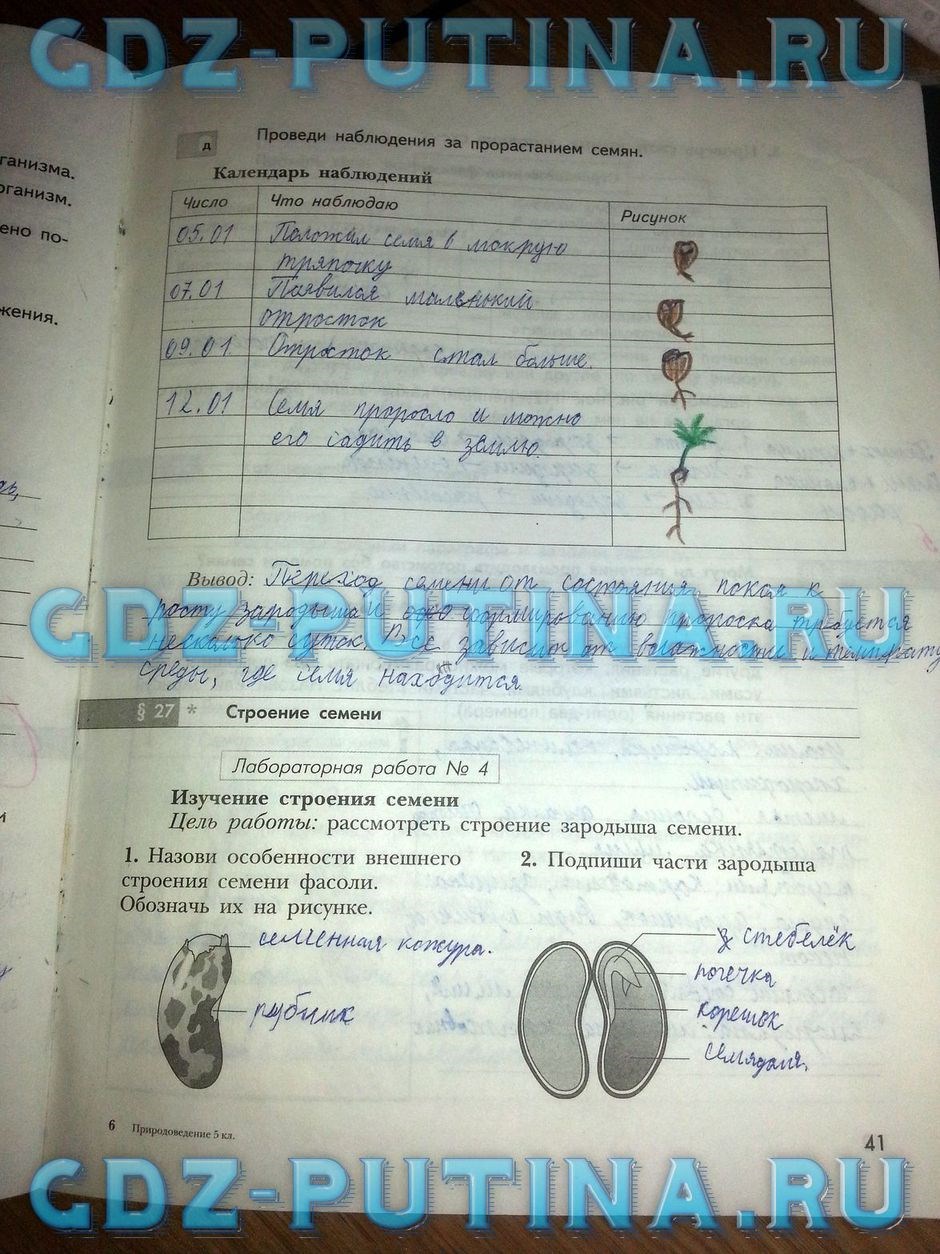 GDZ-PUTINA.RU
ганизма.
рганизм.
ено по-
жения.
д
Проведи наблюдения за прорастанием семян.
Календарь наблюдений
Число Что наблюдаю Рисунок
05.01 Положил семя в мокрую
тряпочку
07.01 Появился маленький
отросток
09.01 Отросток стал больше.
12.01 Семя проросло и можно
его садить в землю.
Вывод: Переход семени от состояния покоя к
GDZ-PUTINA.RU
росту зародыша и формированию проростка требуется
несколько суток. Все зависит от влажности и температу
среды, где семя находится.
§ 27 * Строение семени
Лабораторная работа № 4
Изучение строения семени
Цель работы: рассмотреть строение зародыша семени.
1. Назови особенности внешнего
строения семени фасоли.
Обозначь их на рисунке.
семенная кожура.
рубчик
2. Подпиши части зародыша
стебелёк
почечка
корешок
семядоля.
6 Природоведение 5 кл.
41
GDZ-PUTINA.RU